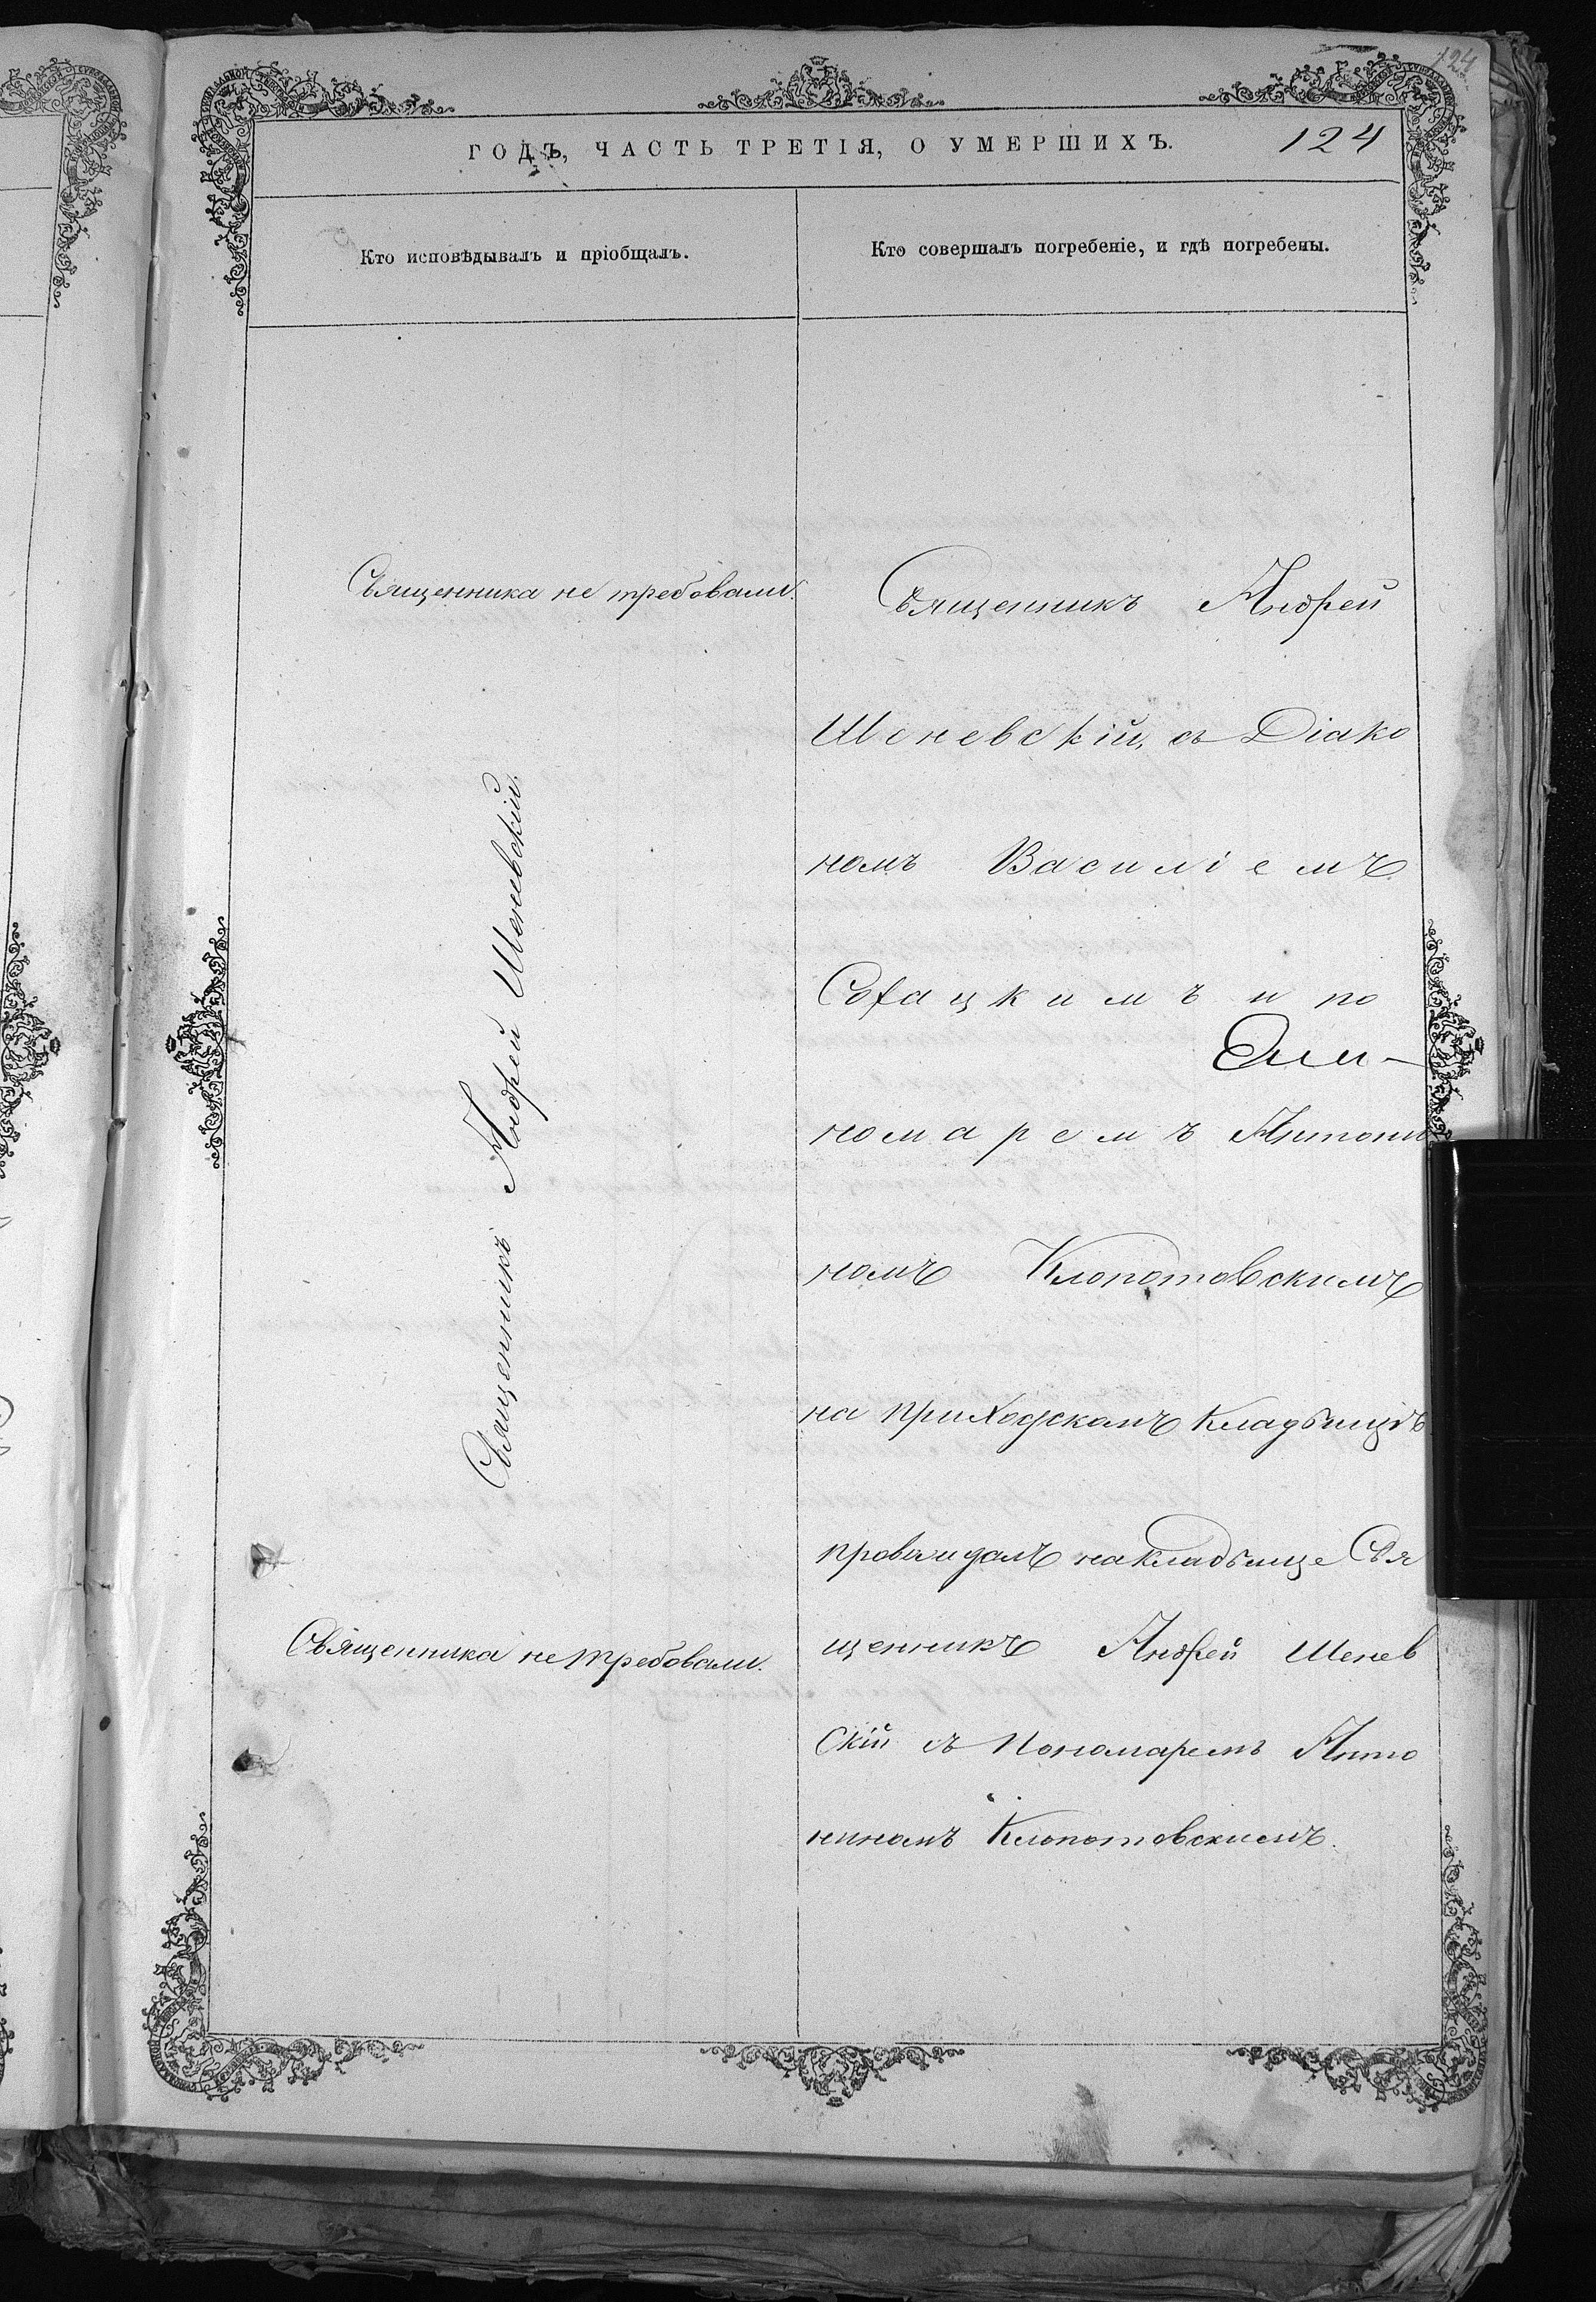 124
ГОДЪ, ЧАСТЬ ТРЕТІЯ, О УМЕРШИХЪ.
124
Кто исповѣдывалъ и пріобщалъ.
Кто совершалъ погребеніе, и гдѣ погребены.
Священника не требовали.
Священникъ Андрей Шеневскій.
Священника не требовали.
Священникъ Андрей
Шеневскій, съ Діако
номъ Василіемъ
и по
номаремъ Антони
номъ Клопотовскимъ
на приходскомъ кладбищѣ
на кладбище Свя
щенникъ Андрей Шенев
скій съ Пономаремъ Анто
ниномъ Клопотовскимъ.